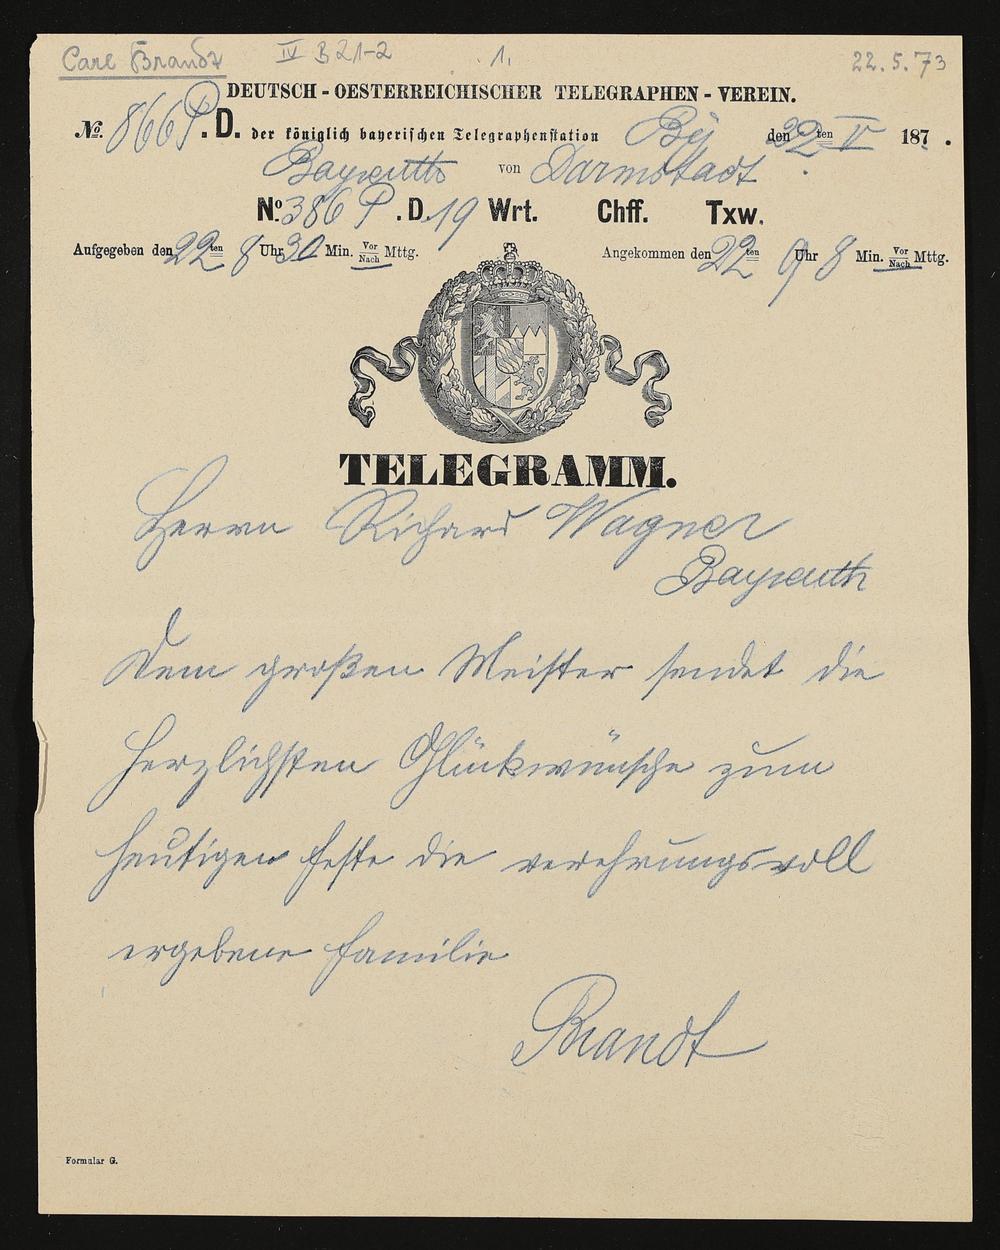 Carl Brandt IV B 21-2 1. 22.5.73
DEUTSCH-OESTERREICHISCHER TELEGRAPHEN-VEREIN.
No. 866 P. D. der königlich bayerischen Telegraphenstation By den 22ten V 187 .
Bayreuth von Darmstadt
No. 386 P. D. 19 Wrt. Chff. Txw.
Aufgegeben den 22ten 8 Uhr 30 Min. Vor Nach Mttg. Angekommen den 22ten 9 Uhr 8 Min. Vor Nach Mttg.
TELEGRAMM.
Herrn Richard Wagner
Bayreuth
Dem großen Meister sendet die
herzlichsten Glückwünsche zum
heutigen Feste die verehrungsvoll
ergebene Familie
Brandt
Formular G.